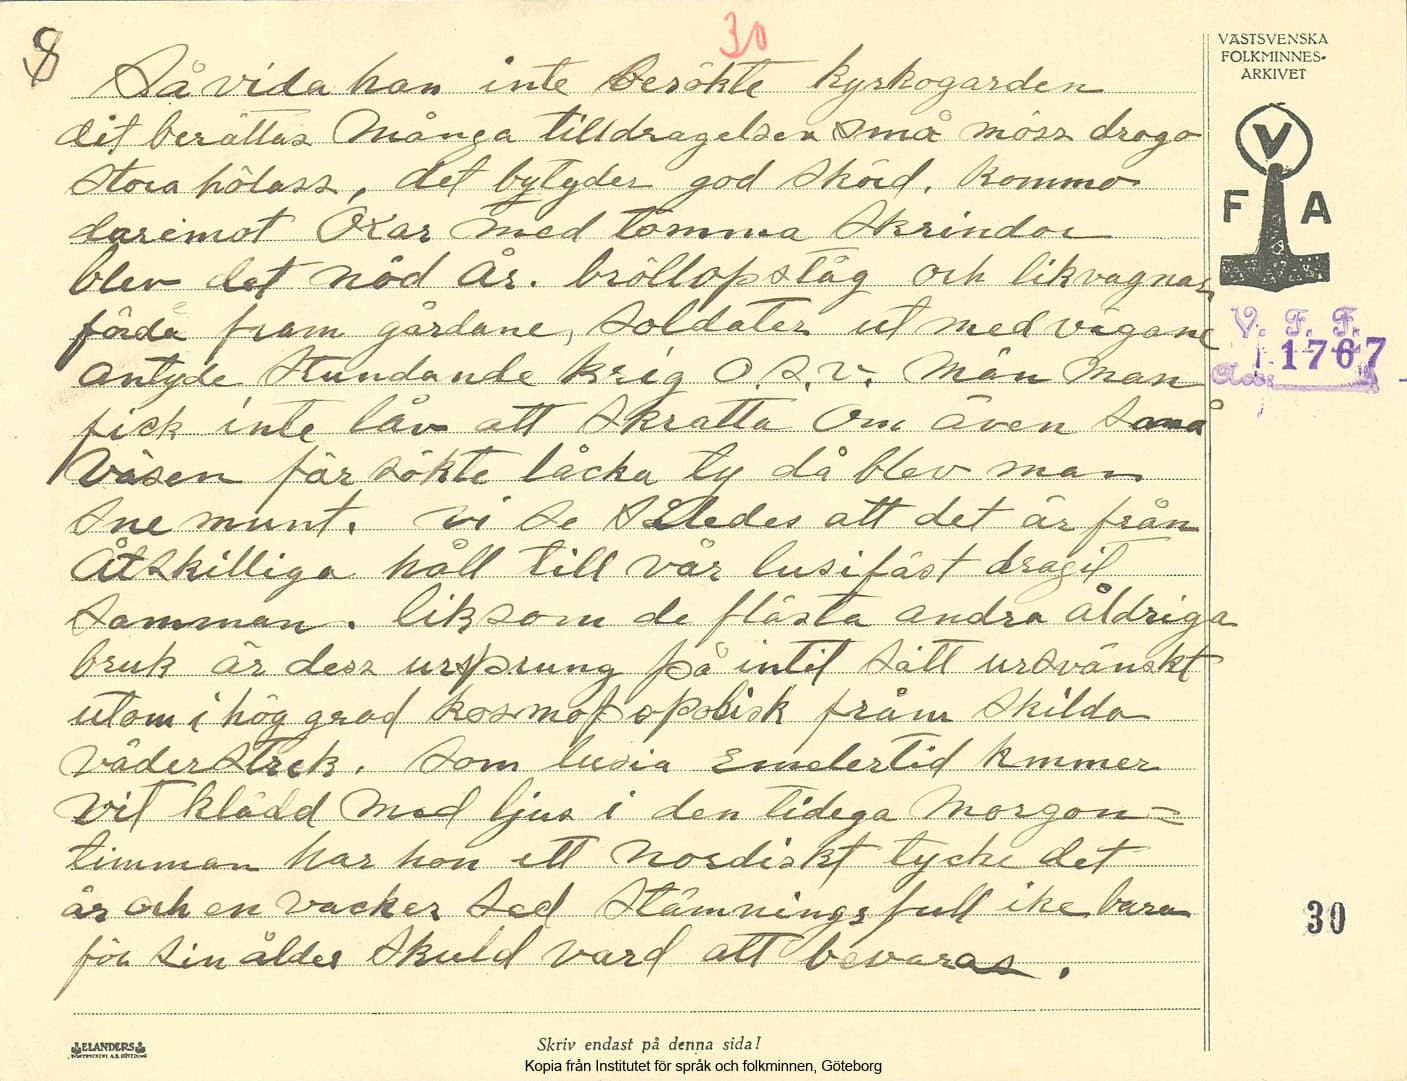 8
30
VÄSTSVENSKA
FOLKMINNES-
ARKIVET
Så vida han inte besökte kyrkogarden
dit berättas många tilldragelser små möss drogo
stora hölass, det bytyder god skörd. kommo
daremot Oxar med tomma skrindor
blev det nöd år. bröllopståg och likvagnar
förda fram gårdane, soldater ut med vägane
antyde stundande krig o.s.v. män man
fick inte låv att skratta om även små
väsen försökte låcka ty då blev man
sne munt. vi se således att det är från
åtskilliga håll till vår lusifäst dragit
samman. liksom de flästa andra åldriga
bruk är dess ursprung på intit sätt ursvänskt
utom i hög grad kosmofopolisk från skilda
väderstrek. som lusia emelertid kmmer
vit klädd med ljus i den tidega morgon=
timman har hon ett nordiskt tycke det
är och en vacker sed stämningsfull ike bara
för sin ålder skuld vard att bevaras.
V
F A
V. F. F.
1767
Acc
30
ELANDERS
Skriv endast på denna sida!
Kopia från Institutet för språk och folkminnen, Göteborg